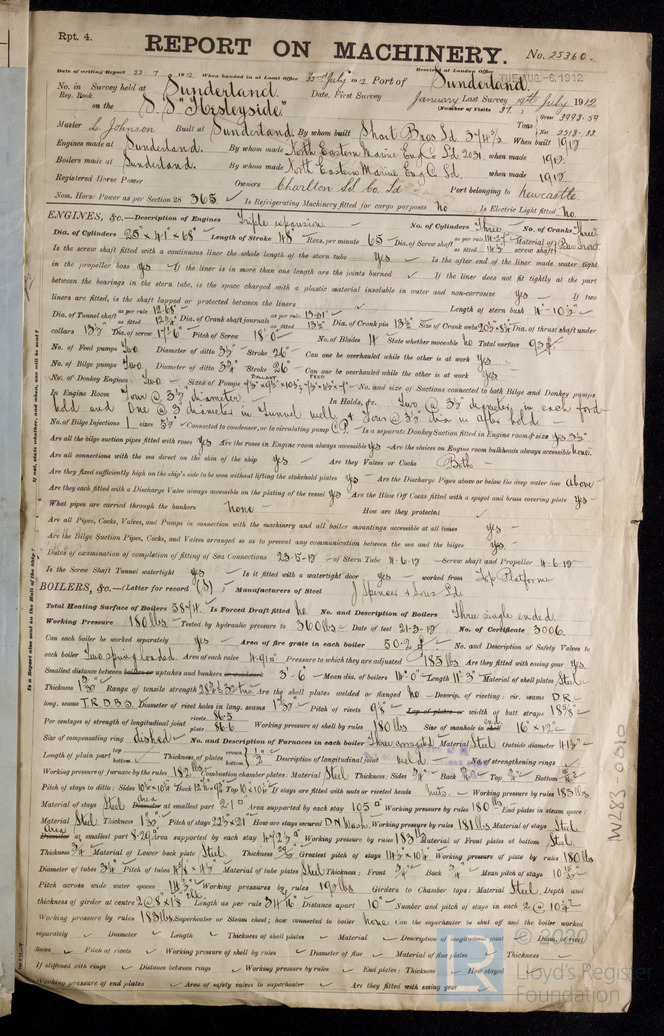 Rpt. 4.
REPORT ON MACHINERY.
No. 25360
Date of writing Report 22.7.1912 When handed in at Local Office 23rd July 1912 Port of Sunderland
Received at London Office TUE. AUG. 6. 1912
No. in Survey held at Sunderland Date, First Survey January Last Survey 19th July 1912
Reg. Book. (Number of Visits 37)
on the S.S. "Hesleyside"
Tons Gross 3993.59 Net 2513.13
Master L. Johnson Built at Sunderland By whom built Short Bros Ld When built 1912
Engines made at Sunderland. By whom made North Eastern Marine Eng Co Ld. 2031. when made 1912.
Boilers made at Sunderland By whom made North Eastern Marine Eng Co Ld. when made 1912
Registered Horse Power Owners Charlton Sd. Co Ld Port belonging to Newcastle.
Nom. Horse Power as per Section 28 365 Is Refrigerating Machinery fitted for cargo purposes No Is Electric Light fitted No
ENGINES, &c.—Description of Engines Triple expansion No. of Cylinders Three No. of Cranks Three
Dia. of Cylinders 25" × 41" × 68" Length of Stroke 48" Revs. per minute 65 Dia. of Screw shaft as per rule as fitted Material of screw shaft
Is the screw shaft fitted with a continuous liner the whole length of the stern tube Yes Is the after end of the liner made water tight
in the propeller boss yes If the liner is in more than one length are the joints burned If the liner does not fit tightly at the part
between the bearings in the stern tube, is the space charged with a plastic material insoluble in water and non-corrosive Yes If two
liners are fitted, is the shaft lapped or protected between the liners Length of stern bush
Dia. of Tunnel shaft as per rule 12.68" as fitted Dia. of Crank shaft journals as per rule as fitted 13½" Dia. of Crank pin 13½" Size of Crank webs Dia. of thrust shaft under
collars 13½" Dia. of screw 17'-6" Pitch of Screw 18'-0" No. of Blades 4 State whether moveable No Total surface
No. of Feed pumps Two Diameter of ditto 3½" Stroke 26" Can one be overhauled while the other is at work Yes
No. of Bilge pumps Two Diameter of ditto 3¾" Stroke 26" Can one be overhauled while the other is at work Yes
No. of Donkey Engines Two Sizes of Pumps BALLAST FEED No. and size of Suctions connected to both Bilge and Donkey pumps
In Engine Room Four @ 3½" diameter. In Holds, &c. Two @ 3½" diameter in each ford
hold and One @ 3" diameter in Tunnel well & Four @ 3½" dia in after hold
No. of Bilge Injections 1 sizes 5½" Connected to condenser, or to circulating pump C.P. Is a separate Donkey Suction fitted in Engine room & size yes 3½"
Are all the bilge suction pipes fitted with roses Yes Are the roses in Engine room always accessible yes Are the sluices on Engine room bulkheads always accessible None
Are all connections with the sea direct on the skin of the ship yes Are they Valves or Cocks Both
Are they fixed sufficiently high on the ship's side to be seen without lifting the stokehold plates yes Are the Discharge Pipes above or below the deep water line Above
Are they each fitted with a Discharge Valve always accessible on the plating of the vessel yes Are the Blow Off Cocks fitted with a spigot and brass covering plate yes
What pipes are carried through the bunkers None How are they protected
Are all Pipes, Cocks, Valves, and Pumps in connection with the machinery and all boiler mountings accessible at all times yes
Are the Bilge Suction Pipes, Cocks, and Valves arranged so as to prevent any communication between the sea and the bilges yes
Dates of examination of completion of fitting of Sea Connections of Stern Tube 4-6-12 Screw shaft and Propeller 4-6-12
Is the Screw Shaft Tunnel watertight yes Is it fitted with a watertight door yes worked from Top Platform
BOILERS, &c.—(Letter for record (S)) Manufacturers of Steel J Spencer & Sons Ld
Total Heating Surface of Boilers Is Forced Draft fitted No No. and Description of Boilers Three single ended
Working Pressure 180 lbs Tested by hydraulic pressure to 360 lbs Date of test No. of Certificate 3006.
Can each boiler be worked separately yes Area of fire grate in each boiler No. and Description of Safety Valves to
each boiler Two spring loaded. Area of each valve Pressure to which they are adjusted 185 lbs Are they fitted with easing gear yes
Smallest distance between boilers or uptakes and bunkers or woodwork 3'-6" Mean dia. of boilers 14'-0" Length 11'-3" Material of shell plates Steel
Thickness Range of tensile strength 28½ & 32 tons Are the shell plates welded or flanged No Descrip. of riveting: cir. seams D.R.
long. seams T.R.D.B.S. Diameter of rivet holes in long. seams Pitch of rivets Lap of plates or width of butt straps
Per centages of strength of longitudinal joint rivets 86.5 plate 86.6 Working pressure of shell by rules 180 lbs Size of manhole in shell 16" × 12"
Size of compensating ring dished No. and Description of Furnaces in each boiler Three corrugated Material Steel Outside diameter
Length of plain part top bottom Thickness of plates crown bottom Description of longitudinal joint weld No. of strengthening rings
Working pressure of furnace by the rules 182 lbs Combustion chamber plates: Material Steel Thickness: Sides Back Top Bottom
Pitch of stays to ditto: Sides Back Top If stays are fitted with nuts or riveted heads nuts. Working pressure by rules 183 lbs
Material of stays Steel Area Diameter at smallest part Area supported by each stay Working pressure by rules 180 lbs End plates in steam space:
Material Steel Thickness Pitch of stays How are stays secured D.N. Wash. Working pressure by rules 181 lbs Material of stays Steel
Area Diameter at smallest part Area supported by each stay Working pressure by rules 183 lbs Material of Front plates at bottom Steel
Thickness Material of Lower back plate Steel Thickness Greatest pitch of stays Working pressure of plate by rules 180 lbs
Diameter of tubes Pitch of tubes Material of tube plates Steel Thickness: Front Back Mean pitch of stays
Pitch across wide water spaces Working pressures by rules Girders to Chamber tops: Material Steel Depth and
thickness of girder at centre Length as per rule Distance apart 10" Number and pitch of stays in each
Working pressure by rules 183 lbs Superheater or Steam chest; how connected to boiler None Can the superheater be shut off and the boiler worked
separately Diameter Length Thickness of shell plates Material Description of longitudinal joint Diam. of rivet
holes Pitch of rivets Working pressure of shell by rules Diameter of flue Material of flue plates Thickness
If stiffened with rings Distance between rings Working pressure by rules End plates: Thickness How stayed
Working pressure of end plates Area of safety valves to superheater Are they fitted with easing gear
W283-0010
© 2020
Lloyd's Register
Foundation